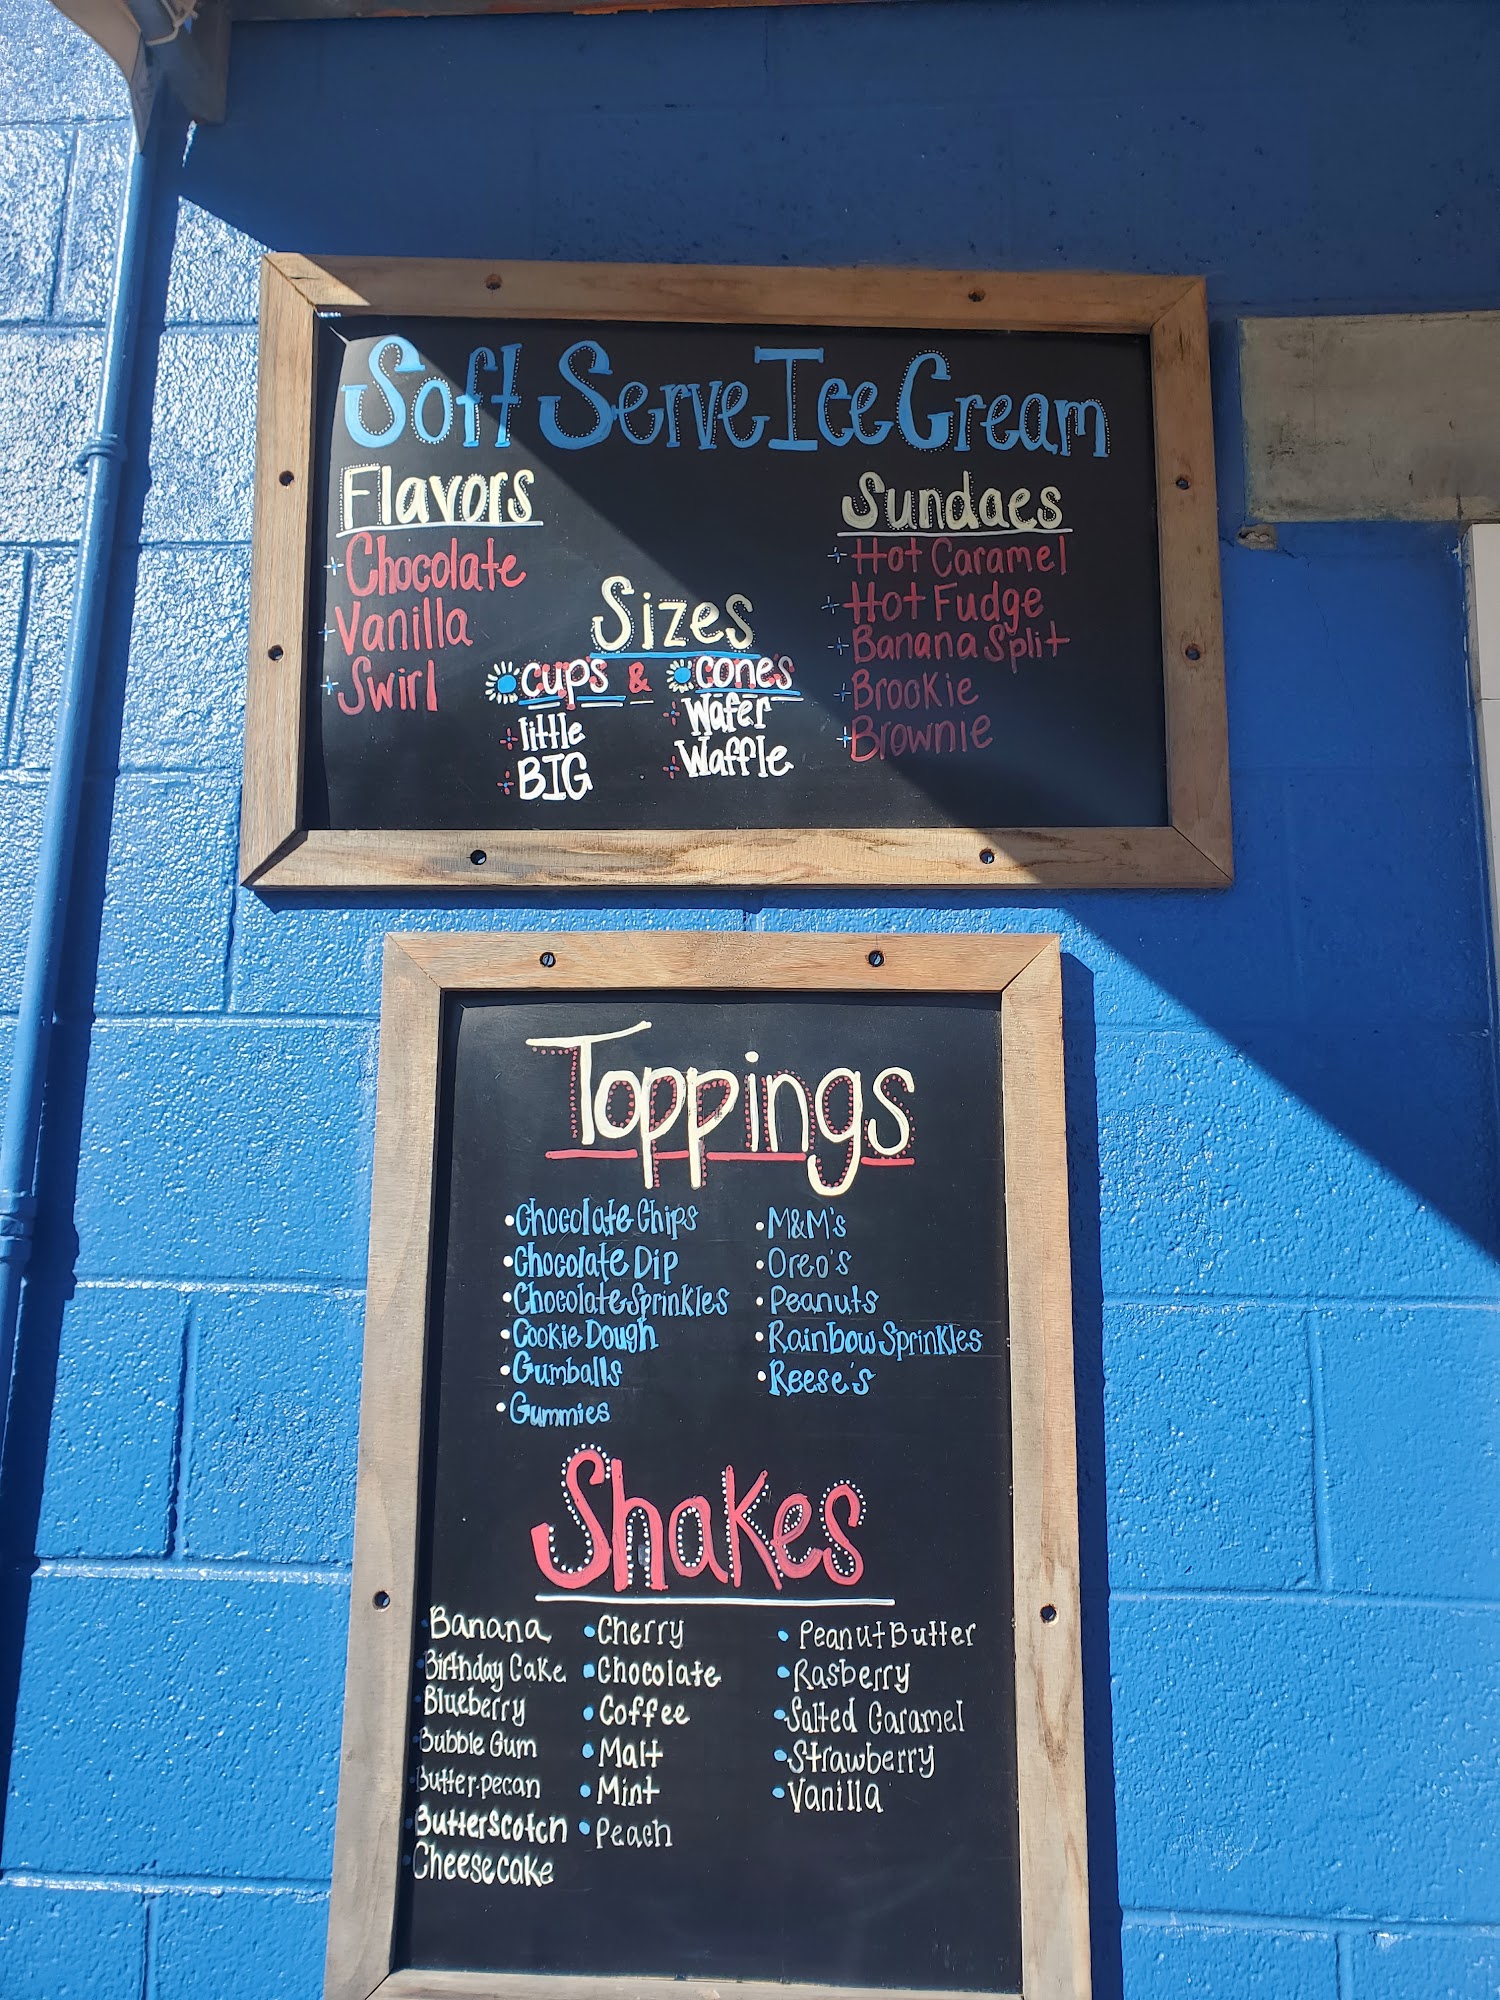 Soft Serve Ice Cream
Flavors
Chocolate
Vanilla
Swirl
Sizes
cups & cones
little
BIG
Wafer
Waffle
Sundaes
Hot Caramel
Hot Fudge
Banana Split
Brookie
Brownie
Toppings
Chocolate Chips
Chocolate Dip
Chocolate Sprinkles
Cookie Dough
Gumballs
Gummies
M&M's
Oreo's
Peanuts
Rainbow Sprinkles
Reese's
Shakes
Banana
Birthday Cake
Blueberry
Bubble Gum
Butter pecan
Butterscotch
Cheesecake
Cherry
Chocolate
Coffee
Malt
Mint
Peach
Peanut Butter
Rasberry
Salted Caramel
Strawberry
Vanilla